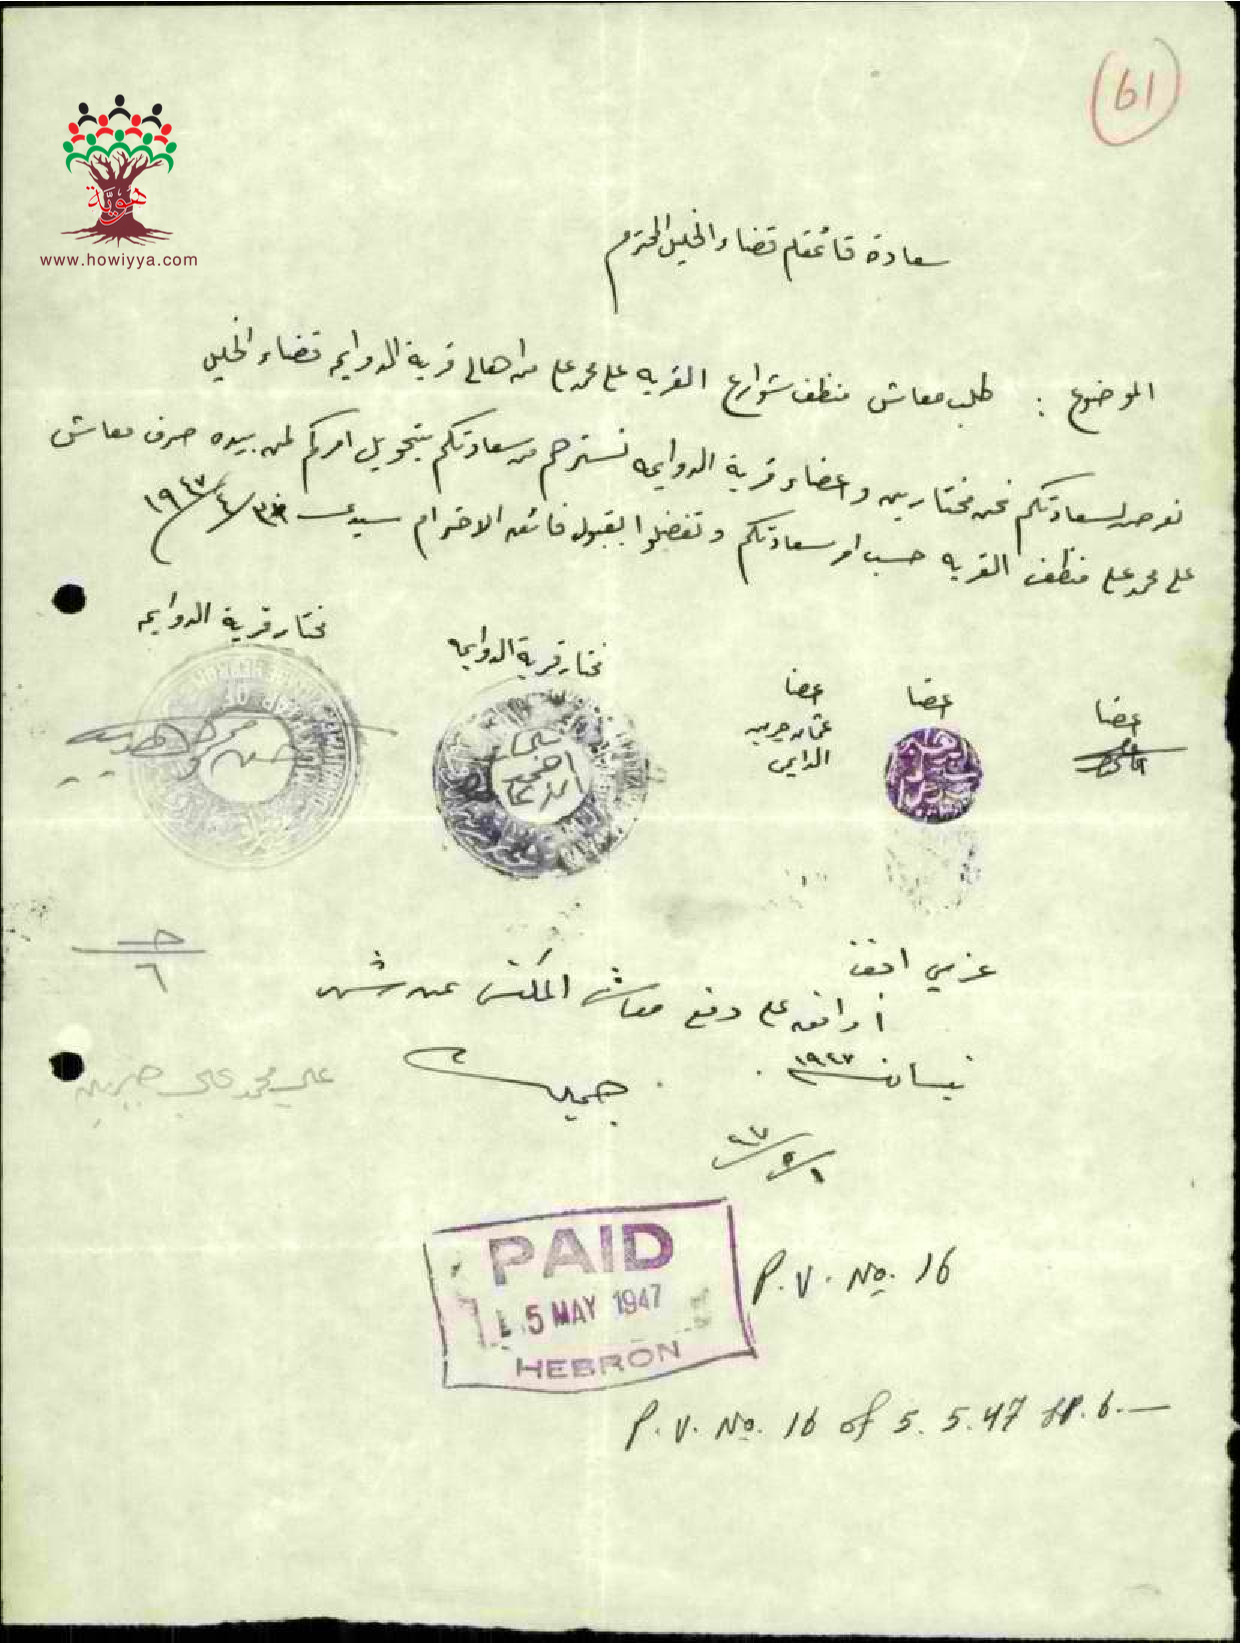 61
هوية
www.howiyya.com
سعادة قائمقام قضاء الخليل المحترم
الموضوع : طلب معاش منظف شوارع القريه علي محمد علي من اهالي قرية الدوايمه قضاء الخليل
نعرض لسعادتكم نحن مختارين واعضاء قرية الدوايمه نسترحم من سعادتكم بتحويل امركم لمن بيده صرف معاش
علي محمد علي منظف القريه حسب امر سعادتكم وتفضلوا بقبول فائق الاحترام سيدي ٤/١٩٤٧
مختار قرية الدوايمه
مختار قرية الدوايمه
اعضا
اعضا
اعضا
عزمي افندي
أوافق على دفع معاش المكنس عن شهر
نيسان ١٩٤٧
علي محمد علي
١/٥/٤٧
٦
PAID
5 MAY 1947
HEBRON
P.V. No. 16
P.V. No. 16 of 5.5.47 LP.6.—